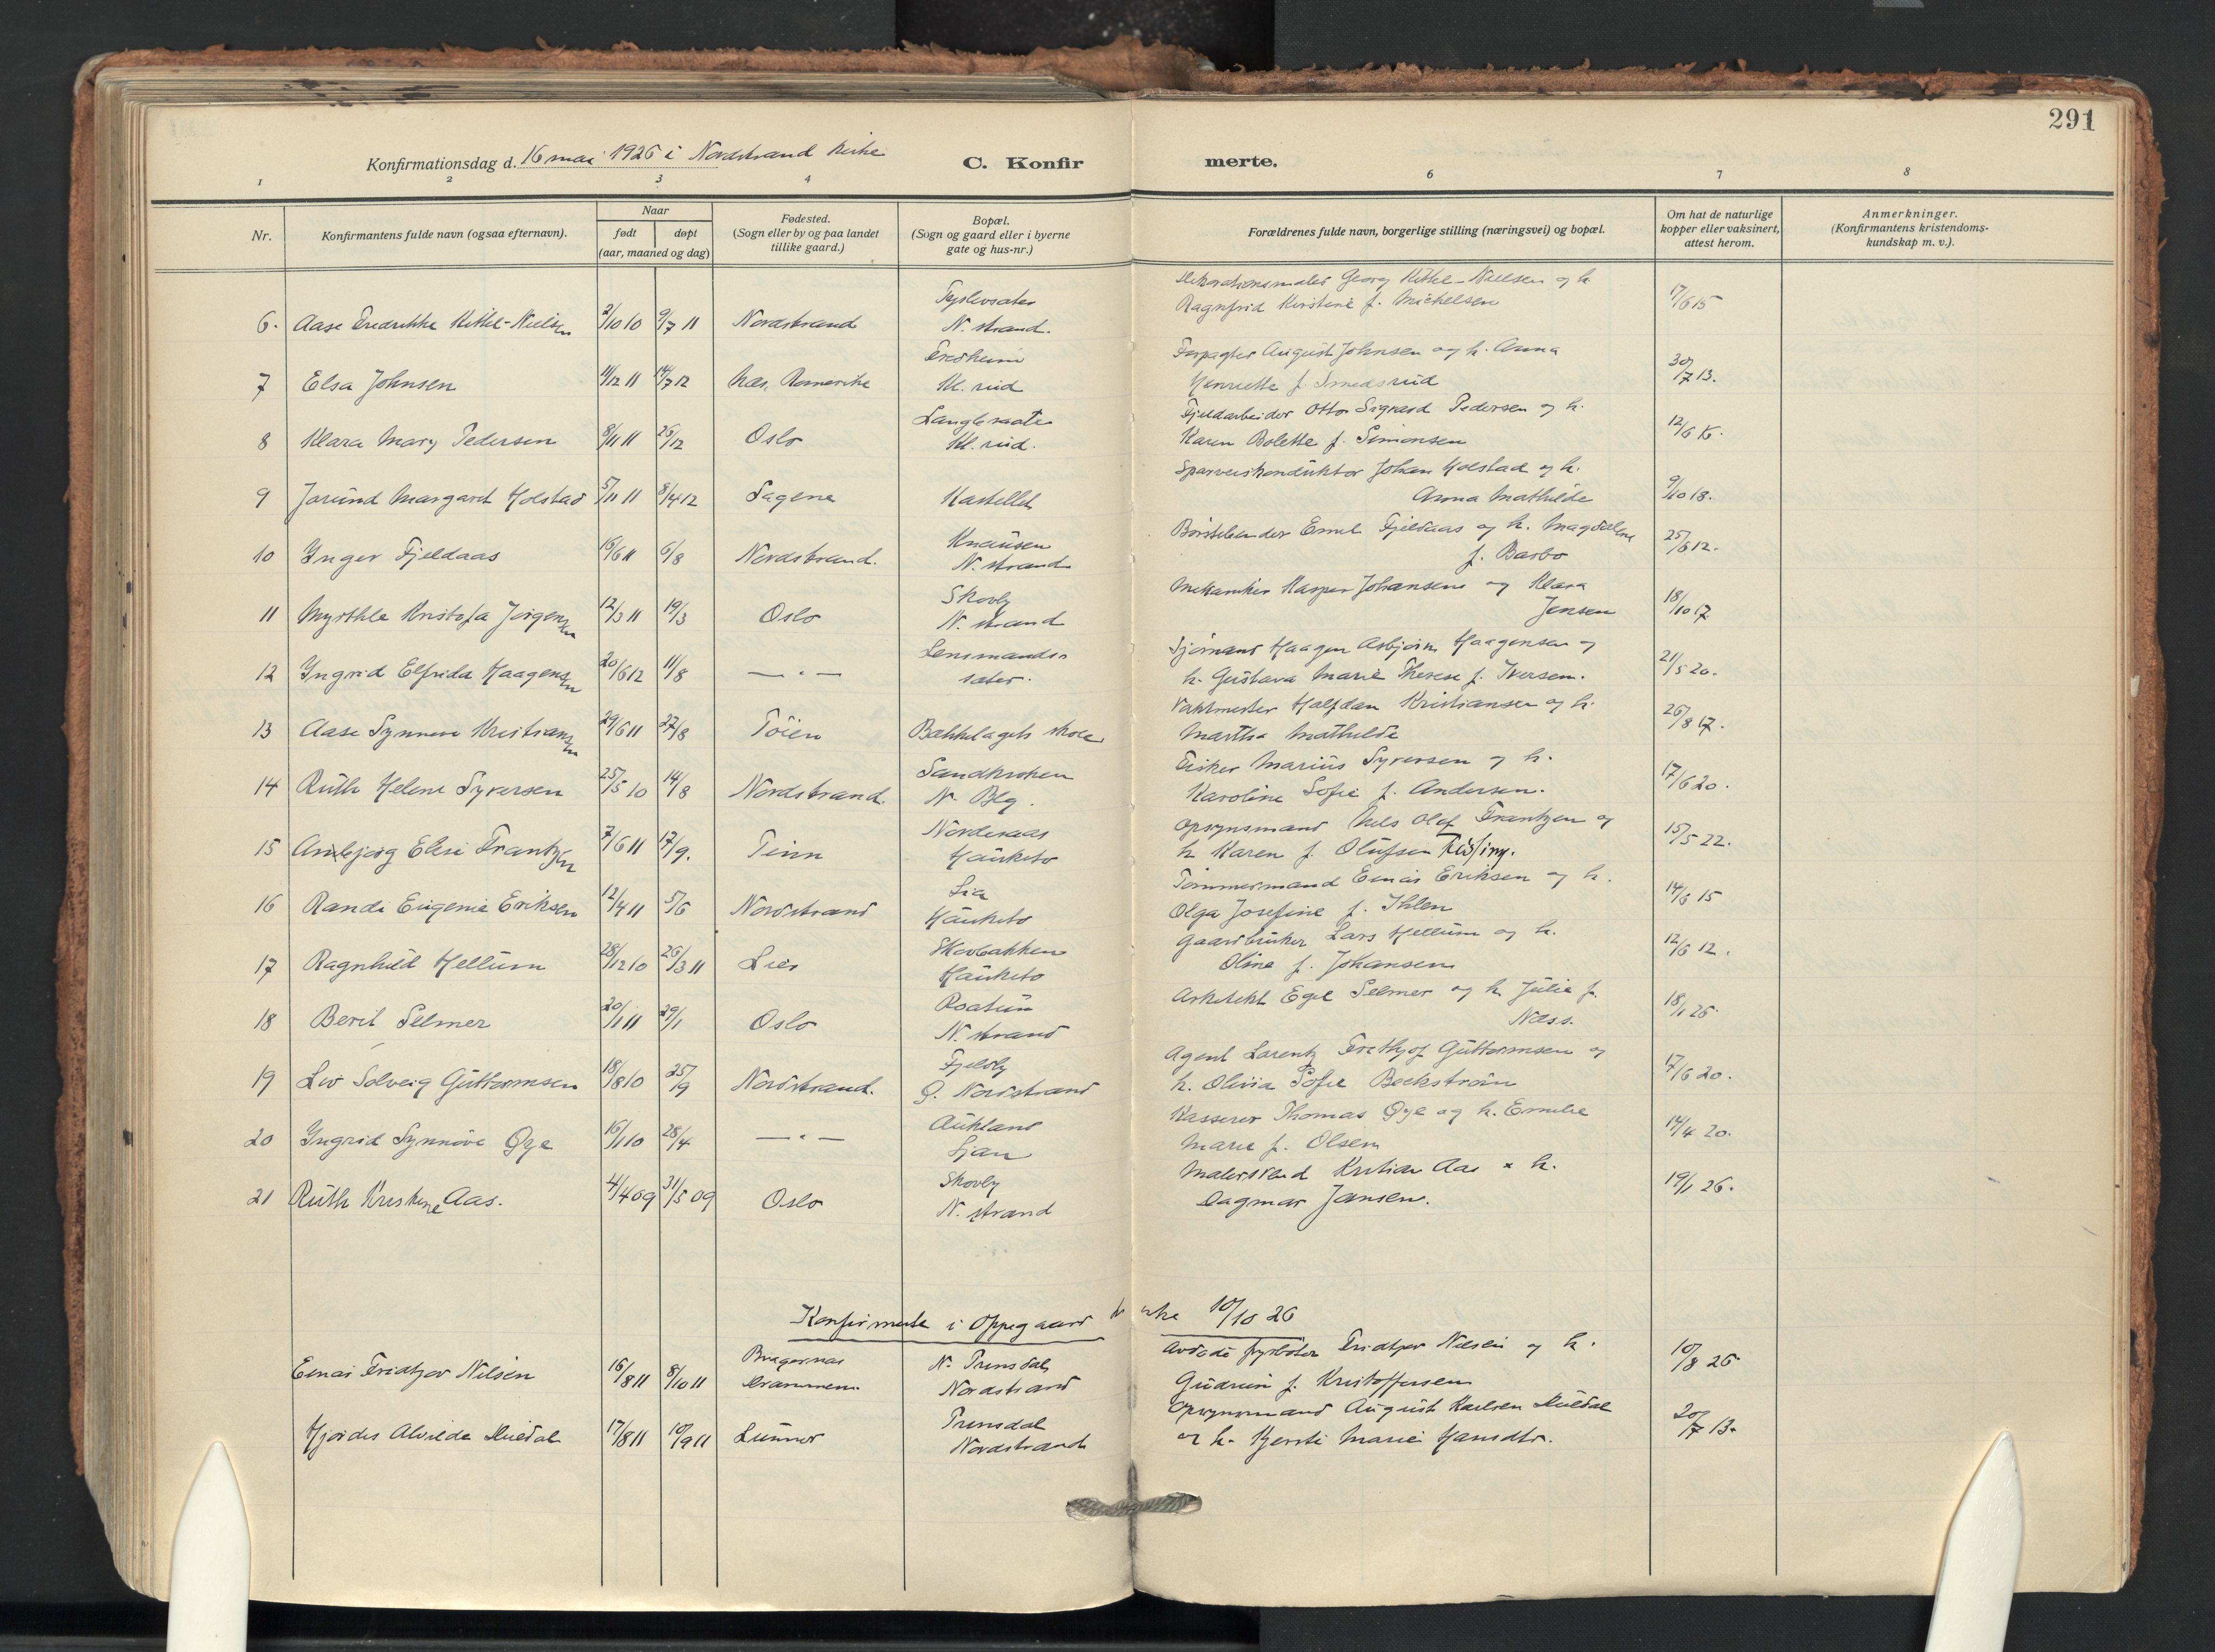 291
Konfirmationsdag d. 16 mai 1926 i Nordstrand kirke
C. Konfirmerte.
1 2 3 4 6 7 8
Nr.
Konfirmantens fulde navn (ogsaa efternavn).
Naar
født døpt
(aar, maaned og dag)
Fødested.
(Sogn eller by og paa landet
tillike gaard.)
Bopæl.
(Sogn og gaard eller i byerne
gate og hus-nr.)
Forældrenes fulde navn, borgerlige stilling (næringsvei) og bopæl.
Om hat de naturlige
kopper eller vaksinert,
attest herom.
Anmerkninger.
(Konfirmantens kristendoms-
kundskap m. v.).
Georg Kittel-Nielsen og h.
6. Aase Fredrikke Kittel-Nielsen 2/10 10 9/7 11 Nordstrand N. strand.
Ragnfrid Kirstine f. Michelsen 17/6 15
Fredheim Forpagter August Johnsen og h. Anna
7 Elsa Johnsen 11/12 11 14/7 12 Næs, Romerike Kl. rud
Henriette f. Smedsrud 30/7 13.
Fjeldarbeider Otto Sigvard Pedersen og h.
8 Klara Mary Pedersen 8/11 11 26/12 Oslo Kl. rud.
Karen Bolette f. Simonsen
Sporveiskonduktør Johan Holstad og h.
9 Jorund Margaret Holstad 5/11 11 8/4 12 Sagene Kastellet
Anna Mathilde 9/10 18.
Knausen Emil Fjeldaas og h. Magdalene
10 Inger Fjeldaas 15/6 11 6/8 Nordstrand. N. strand
f. Barbo 25/6 12.
Skovly Mekaniker Kasper Johansen og Klara
11 Kristofa Jørgensen 12/3 11 19/3 Oslo N. strand
Jensen 18/10 17
Lensmands- Sjømand Haagen Asbjørn Haagensen og
12 Ingrid Elfrida Haagensen 20/6 12 11/8 — " — sæter.
h. Gustava Marie Therese f. Iversen. 21/5 20.
Vaktmester Halfdan Kristiansen og h.
13 Aase Synnøve Kristiansen 29/6 11 27/8 Tøien Bækkelagets skole
Martha Mathilde 26/8 17.
Sandkroken Fisker Marius Syversen og h.
14 Ruth Helene Syversen 25/5 10 14/8 Nordstrand. N. Blg.
Karoline Sofie f. Andersen. 17/6 20.
Nordraas Opsynsmand Nils Olaf Frantzen og
15 Frantzen 7/6 11 17/9. Tinn Hauketo
h. Karen f. Olufsen 15/5 22.
Lia Tømmermand Einar Eriksen og h.
16 Randi Eugenie Eriksen 12/4 11 5/6 Nordstrand Hauketo
Olga Josefine f. Ihlen 14/6 15
Skovbakken Gaardbruker Lars Hellum og h.
17 Ragnhild Hellum 28/12 10 26/3 11 Lier Hauketo
Oline f. Johansen 12/6 12.
Roatun Arkitekt Egil Selmer og h. Julie f.
18 Berit Selmer 20/1 11 29/1 Oslo N. strand
Næss. 18/1 26.
Fjeldly Agent Lorentz Frithjof Guttormsen og
19 Liv Solveig Guttormsen 18/8 10 25/9 Nordstrand. Ø. Nordstrand
h. Olivia Sofie Beckstrøm 17/6 20.
Aukland Kasserer Thomas Øye og h. Emilie
20 Ingrid Synnøve Øye 16/1 10 28/4 — " — Ljan
Marie f. Olsen 14/4 20.
Skovly Malersvend Kristian Aas & h.
21 Ruth Kristine Aas. 4/4 09 31/5 09 Oslo N. strand
Dagmar Jansen. 19/1 26.
Konfirmerte i Oppegaard kirke 10/10 26
Bragernæs N. Prinsdal Avdøde fyrbøter Fridtjov Nilsen og h.
Einar Fridtjov Nilsen 16/8 11 8/10 11 Drammen. Nordstrand
Gudrun f. Kristoffersen 10/8 26
Prinsdal Opsynsmand August Karlsen Muldal
Hjørdis Alvilde Muldal 17/8 11 10/9 11 Lunner Nordstrand
og h. Kjersti Marie Hansdtr. 20/7 13.